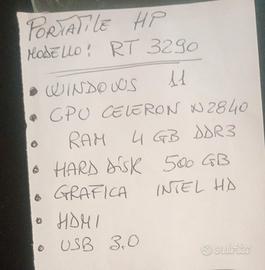 PORTATILE HP
MODELLO: RT 3290
• WINDOWS 11
• CPU CELERON N2840
• RAM 4 GB DDR3
• HARD DISK 500 GB
• GRAFICA INTEL HD
• HDMI
• USB 3.0
subito